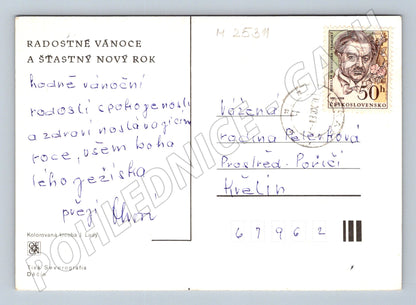 M 2531
RADOSTNÉ VÁNOCE
A ŠŤASTNÝ NOVÝ ROK
hodně vánoční
radosti spokojenosti
a zdraví
roce, všem boha
ježíška
přejí
Kolorovaná kresba J. Lady
Tisk Severografia
Děčín
50h
ČESKOSLOVENSKO
Vážená
rodina Peterková
Prostřed. Poříčí
Květín
67962
POHLEDNICE - GALH